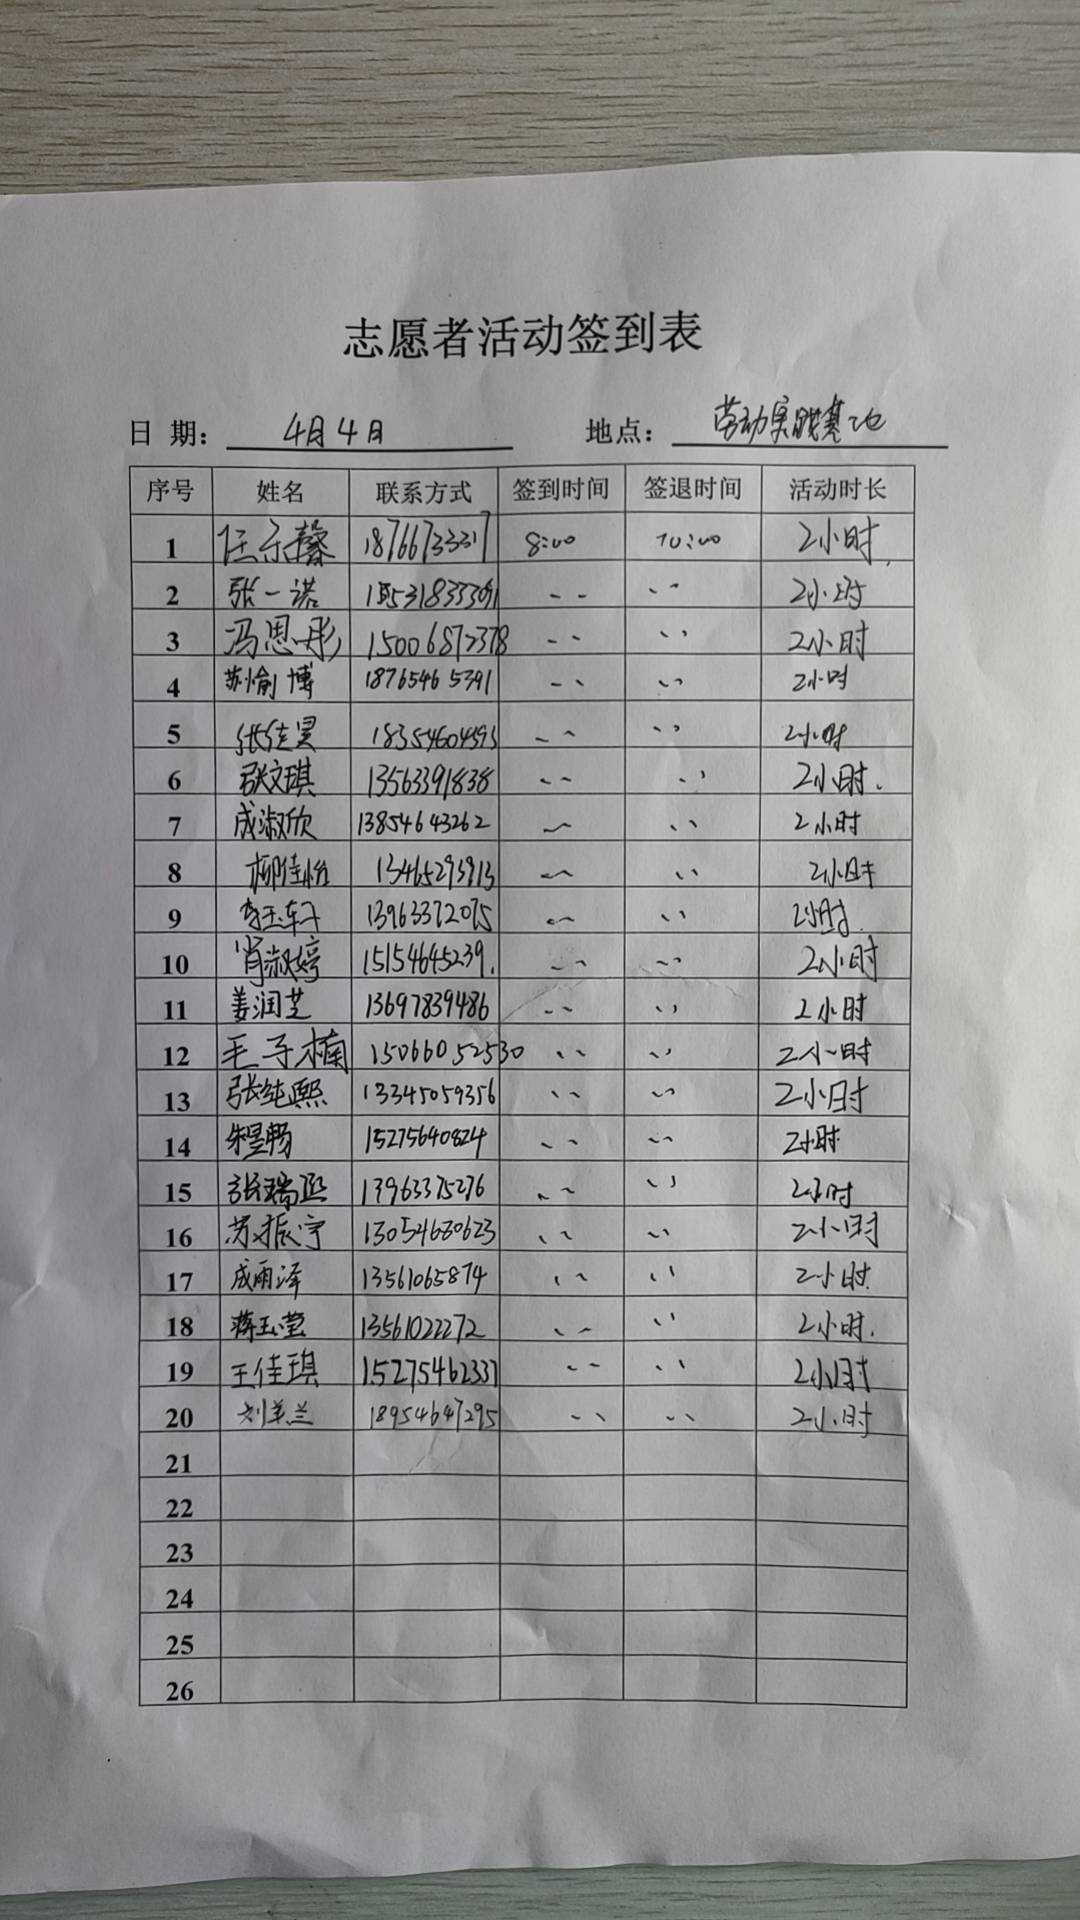 志愿者活动签到表
日 期： 4月4日 地点： 劳动实践基地
序号 姓名 联系方式 签到时间 签退时间 活动时长
1 任示馨 8:00 10:00 2小时
2 张一诺 2小时
3 冯思彤 15006872378 2小时
4 苏愉博 18765465391 2小时
5 张佳昊 18354604393 2小时
6 张文琪 13563391838 2小时.
7 成淑欣 13854643262 2小时
8 柳佳怡 13465293913 2小时
9 13963372075 2小时.
10 肖淑婷 15154645239. 2小时
11 姜润芝 13697839486 2小时
12 毛子楠 15066052530 2小时
13 张纯熙 13345059356 2小时
14 朱昱畅 15275640824 2小时
15 张瑞熙 13963375276 2小时
16 苏振宇 13054630623 2小时
17 成雨泽 13561065874 2小时
18 蒋玉莹 13561022272 2小时.
19 王佳琪 15275462337 2小时
20 18954647295 2小时
21
22
23
24
25
26